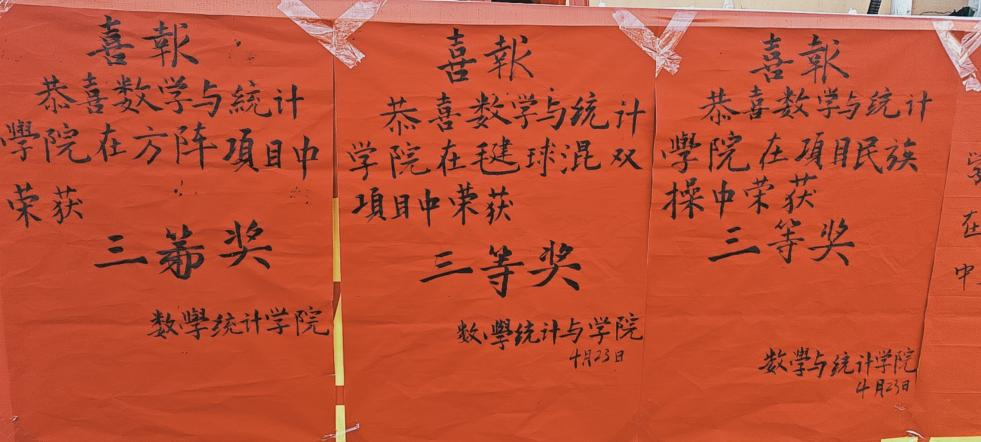 喜報
恭喜数学与統计
學院在方阵項目中
荣获
三等奖
数學统计学院
喜報
恭喜数学与统计
学院在毽球混双
項目中荣获
三等奖
数學统计与学院
4月23日
喜報
恭喜数学与统计
學院在項目民族
操中荣获
三等奖
数學与统计学院
4月23日
学
在
中